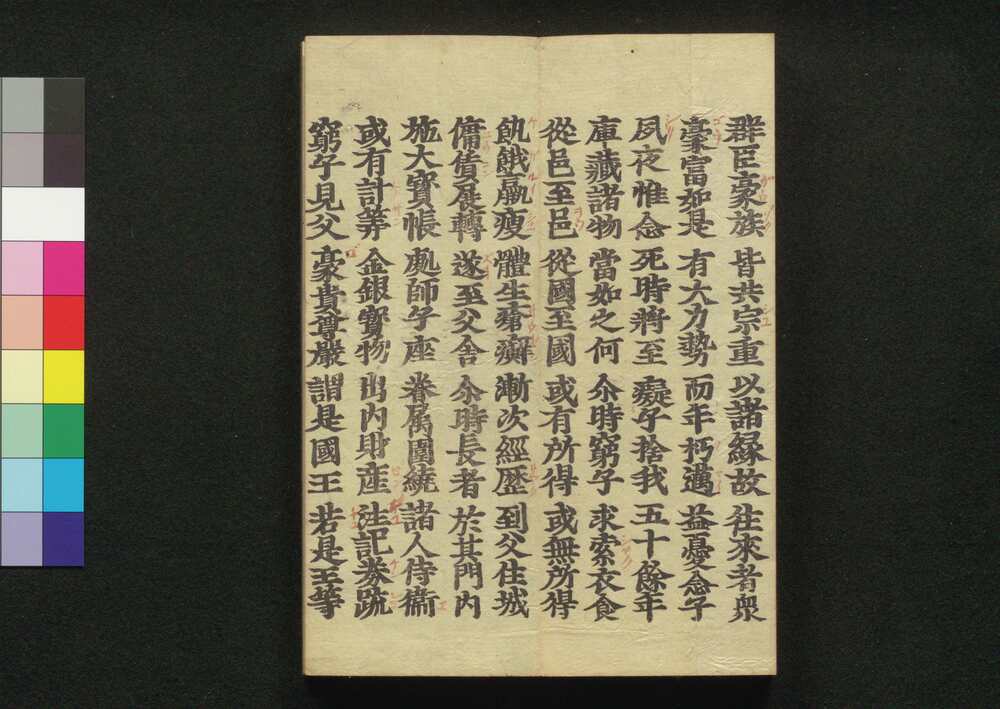 群臣豪族　皆共宗重　以諸縁故　往來者衆
豪富如是　有大力勢　而年朽邁　益憂念子
夙夜惟念　死時將至　癡子捨我　五十餘年
庫藏諸物　當如之何　尒時窮子　求索衣食
從邑至邑　從國至國　或有所得　或無所得
飢餓羸瘦　體生瘡癬　漸次經歴　到父住城
傭賃展轉　遂至父舍　尒時長者　於其門内
施大寶帳　處師子座　眷属圍繞　諸人侍衞
或有計筭　金銀寶物　出内財産　注記券䟽
窮子見父　豪貴尊嚴　謂是國王　若是王等